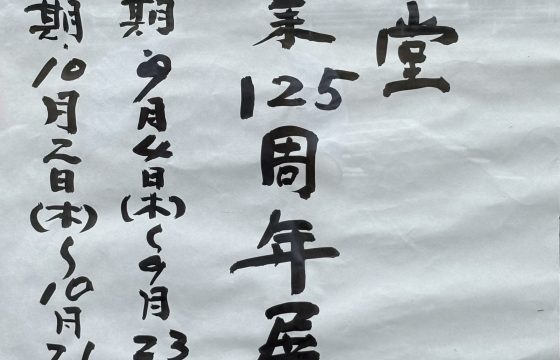 堂
業125周年展
期・9月4日(木)〜9月23
期・10月2日(木)〜10月21